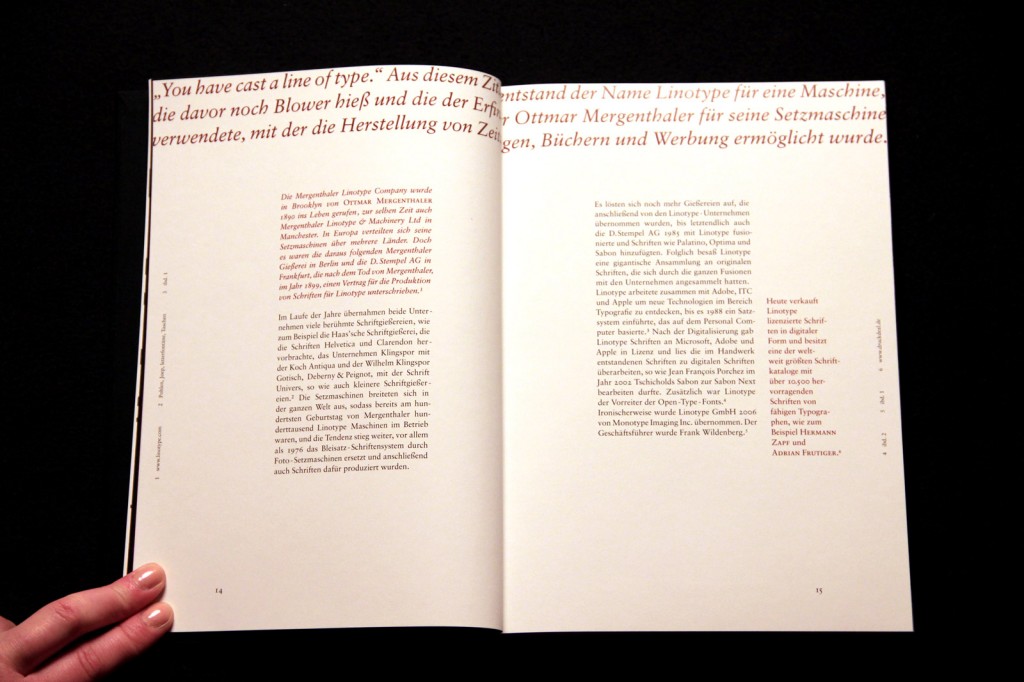 „You have cast a line of type.“ Aus diesem Zit entstand der Name Linotype für eine Maschine,
die davor noch Blower hieß und die der Erfin r Ottmar Mergenthaler für seine Setzmaschine
verwendete, mit der die Herstellung von Zeit gen, Büchern und Werbung ermöglicht wurde.
Die Mergenthaler Linotype Company wurde
in Brooklyn von Ottmar Mergenthaler
1890 ins Leben gerufen, zur selben Zeit auch
Mergenthaler Linotype & Machinery Ltd in
Manchester. In Europa verteilten sich seine
Setzmaschinen über mehrere Länder. Doch
es waren die daraus folgenden Mergenthaler
Gießerei in Berlin und die D. Stempel AG in
Frankfurt, die nach dem Tod von Mergenthaler,
im Jahr 1899, einen Vertrag für die Produktion
von Schriften für Linotype unterschrieben.¹
Im Laufe der Jahre übernahmen beide Unter-
nehmen viele berühmte Schriftgießereien, wie
zum Beispiel die Haas'sche Schriftgießerei, die
die Schriften Helvetica und Clarendon her-
vorbrachte, das Unternehmen Klingspor mit
der Koch Antiqua und der Wilhelm Klingspor
Gotisch, Deberny & Peignot, mit der Schrift
Univers, so wie auch kleinere Schriftgießer-
eien.² Die Setzmaschinen breiteten sich in
der ganzen Welt aus, sodass bereits am hun-
dertsten Geburtstag von Mergenthaler hun-
derttausend Linotype Maschinen im Betrieb
waren, und die Tendenz stieg weiter, vor allem
als 1976 das Bleisatz-Schriftensystem durch
Foto-Setzmaschinen ersetzt und anschließend
auch Schriften dafür produziert wurden.
1 www.linotype.com 2 Pohlen, Joep, letterfontäne, Taschen 3 ibd. 1
14
Es lösten sich noch mehr Gießereien auf, die
anschließend von den Linotype-Unternehmen
übernommen wurden, bis letztendlich auch
die D. Stempel AG 1985 mit Linotype fusio-
nierte und Schriften wie Palatino, Optima und
Sabon hinzufügten. Folglich besaß Linotype
eine gigantische Ansammlung an originalen
Schriften, die sich durch die ganzen Fusionen
mit den Unternehmen angesammelt hatten.
Linotype arbeitete zusammen mit Adobe, ITC
und Apple um neue Technologien im Bereich
Typografie zu entdecken, bis es 1988 ein Satz-
system einführte, das auf dem Personal Com-
puter basierte.³ Nach der Digitalisierung gab
Linotype Schriften an Microsoft, Adobe und
Apple in Lizenz und lies die im Handwerk
entstandenen Schriften zu digitalen Schriften
überarbeiten, so wie Jean François Porchez im
Jahr 2002 Tschicholds Sabon zur Sabon Next
bearbeiten durfte. Zusätzlich war Linotype
der Vorreiter der Open-Type-Fonts.⁴
Ironischerweise wurde Linotype GmbH 2006
von Monotype Imaging Inc. übernommen. Der
Geschäftsführer wurde Frank Wildenberg.⁵
Heute verkauft
Linotype
lizenzierte Schrif-
ten in digitaler
Form und besitzt
eine der welt-
weit größten Schrift-
kataloge mit
über 10.500 her-
vorragenden
Schriften von
fähigen Typogra-
phen, wie zum
Beispiel Hermann
Zapf und
Adrian Frutiger.⁶
4 ibd. 2 5 ibd. 1 6 www.druckderl.de
15